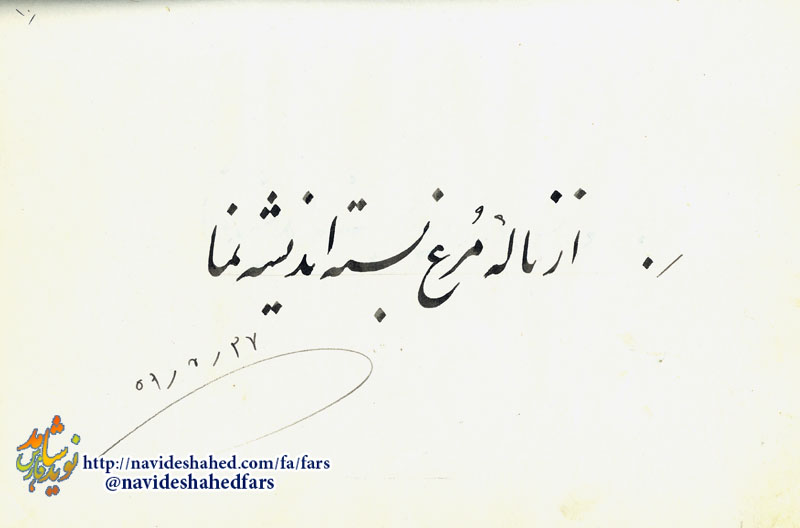 از نالهٔ مُرغ بسته اندیشه نما
نوید شاهد
فارس
http://navideshahed.com/fa/fars
@navideshahedfars